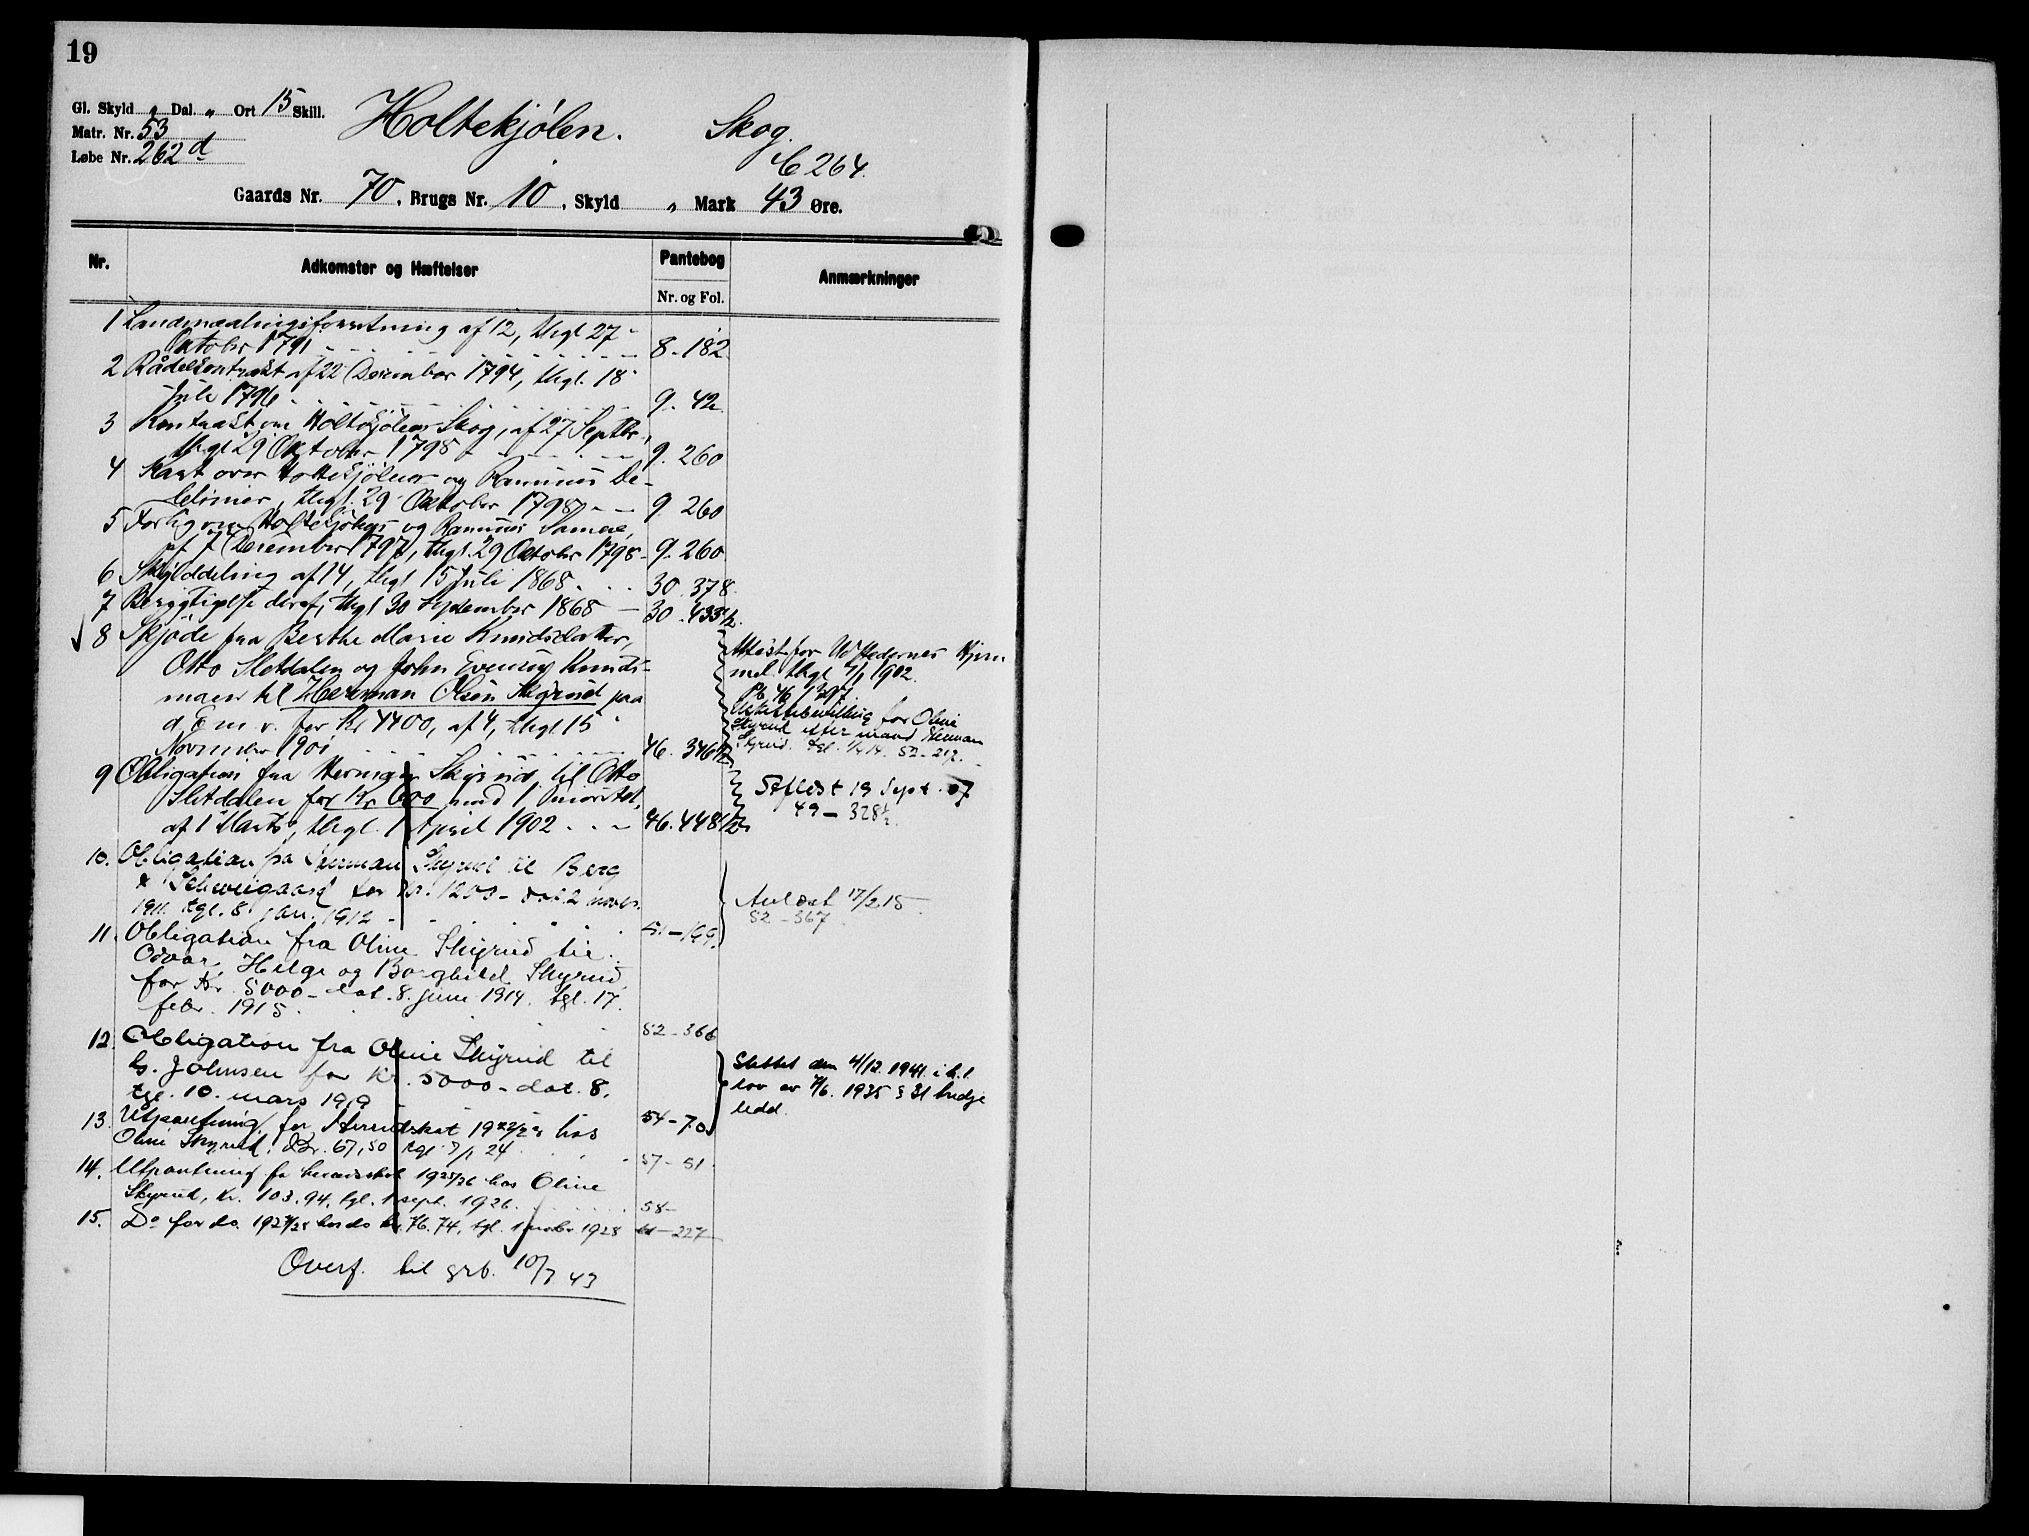 19
Gl. Skyld „ Dal. „ Ort 15 Skill.
Matr. Nr. 53
Løbe Nr. 262 d
Holtekjølen. Skog.
C 264.
Gaards Nr. 70, Brugs Nr. 10, Skyld „ Mark 43 Øre.
Nr. Adkomster og Hæftelser Pantebog Anmærkninger
Nr. og Fol.
1 af 12, thgl 27
Oktober 1791 8. 182
2 Rådelkontrakt af 22 December 1794, thgl. 18
Juli 1796 9. 42
3 Kontrakt om Holtekjølens Skog, af 27 Septbr.,
thgl 29 Oktober 1798 9. 260
4 Kart over Holtekjølens og Ramnæs De-
thgl. 29 Oktober 1798 9 260
5 Forlig om Holtekjølens og Ramnæs
af 7 December 1797, thgl. 29 Oktober 1798 9. 260
6 Skylddeling af 14, thgl 15 Juli 1868 30. 378.
7 Berigtigelse deraf, thgl 30 September 1868 30. 433½.
8 Skjøde fra Berthe Marie Knudsdatter,
Otto Sletdalen og John Evensen Knuds-
moen til Herman Olsen Skyrud paa
d. E. m. v. for Kr 4400, af 4, thgl 15
November 1901 46. 346½
Attest for Udstedernes Hjem-
mel thgl 1902.
Pb. 46
Uskiftebevilling for Oline
Skyrud efter mand Herman
Skyrud. tgl. 52-217.
9 Obligation fra Herman Skyrud til Otto
Sletdalen for Kr 600 med 1 Prioritet,
af 1 Marts, thgl. 1 April 1902 46. 448½
Aflæst 19 Sept. 07
49 – 328½.
10. Obligation fra Herman Skyrud til Berg
& Schweigaard for Kr. 1200 – dat. 2 novbr.
1911. tgl. 8. jan. 1912 51 – 199.
Avlæst 17/2 15.
52 – 367
11. Obligation fra Oline Skyrud til
Odvar, Helge og Borghild Skyrud
for Kr. 5000 – dat. 8. juni 1914. tgl. 17.
febr. 1915. 52 – 366
12. Obligation fra Oline Skyrud til
G. Johnsen for Kr. 5000 – dat. 8.
tgl. 10. mars 1919 54 – 70
Slettet den 4/12. 1941. i h. t.
lov av 7/6. 1935 § 31 tredje
ledd.
13. Utpantning for Herredskat 1922/23 hos
Oline Skyrud, Kr. 67,50 tgl. 24 57 – 51
14. Utpantning for herredskat 1925/26 hos Oline
Skyrud, Kr. 103.94. tgl. 1 sept. 1926. 58 –
15. Do for do. 1927/28 hos do kr. 76.74. tgl. 1 novbr 1928 – 227
Overf. til grb. 10/7 43